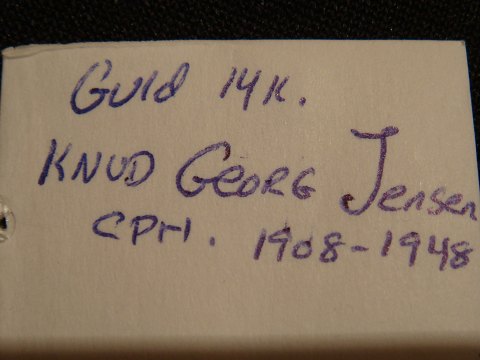 Guld 14K.
KNUD GEORG Jensen
CPH. 1908-1948